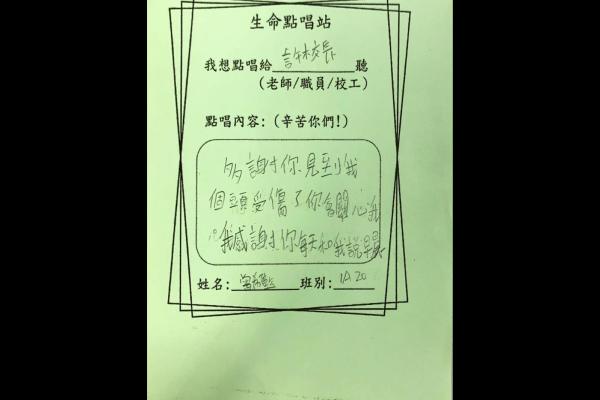 生命點唱站
我想點唱給許校長聽
(老師/職員/校工)
點唱內容:(辛苦你們!)
多謝你見到我
個頭受傷了你會關心我
我感謝你每天和我說早晨
姓名: 曾 班別: 1A 20